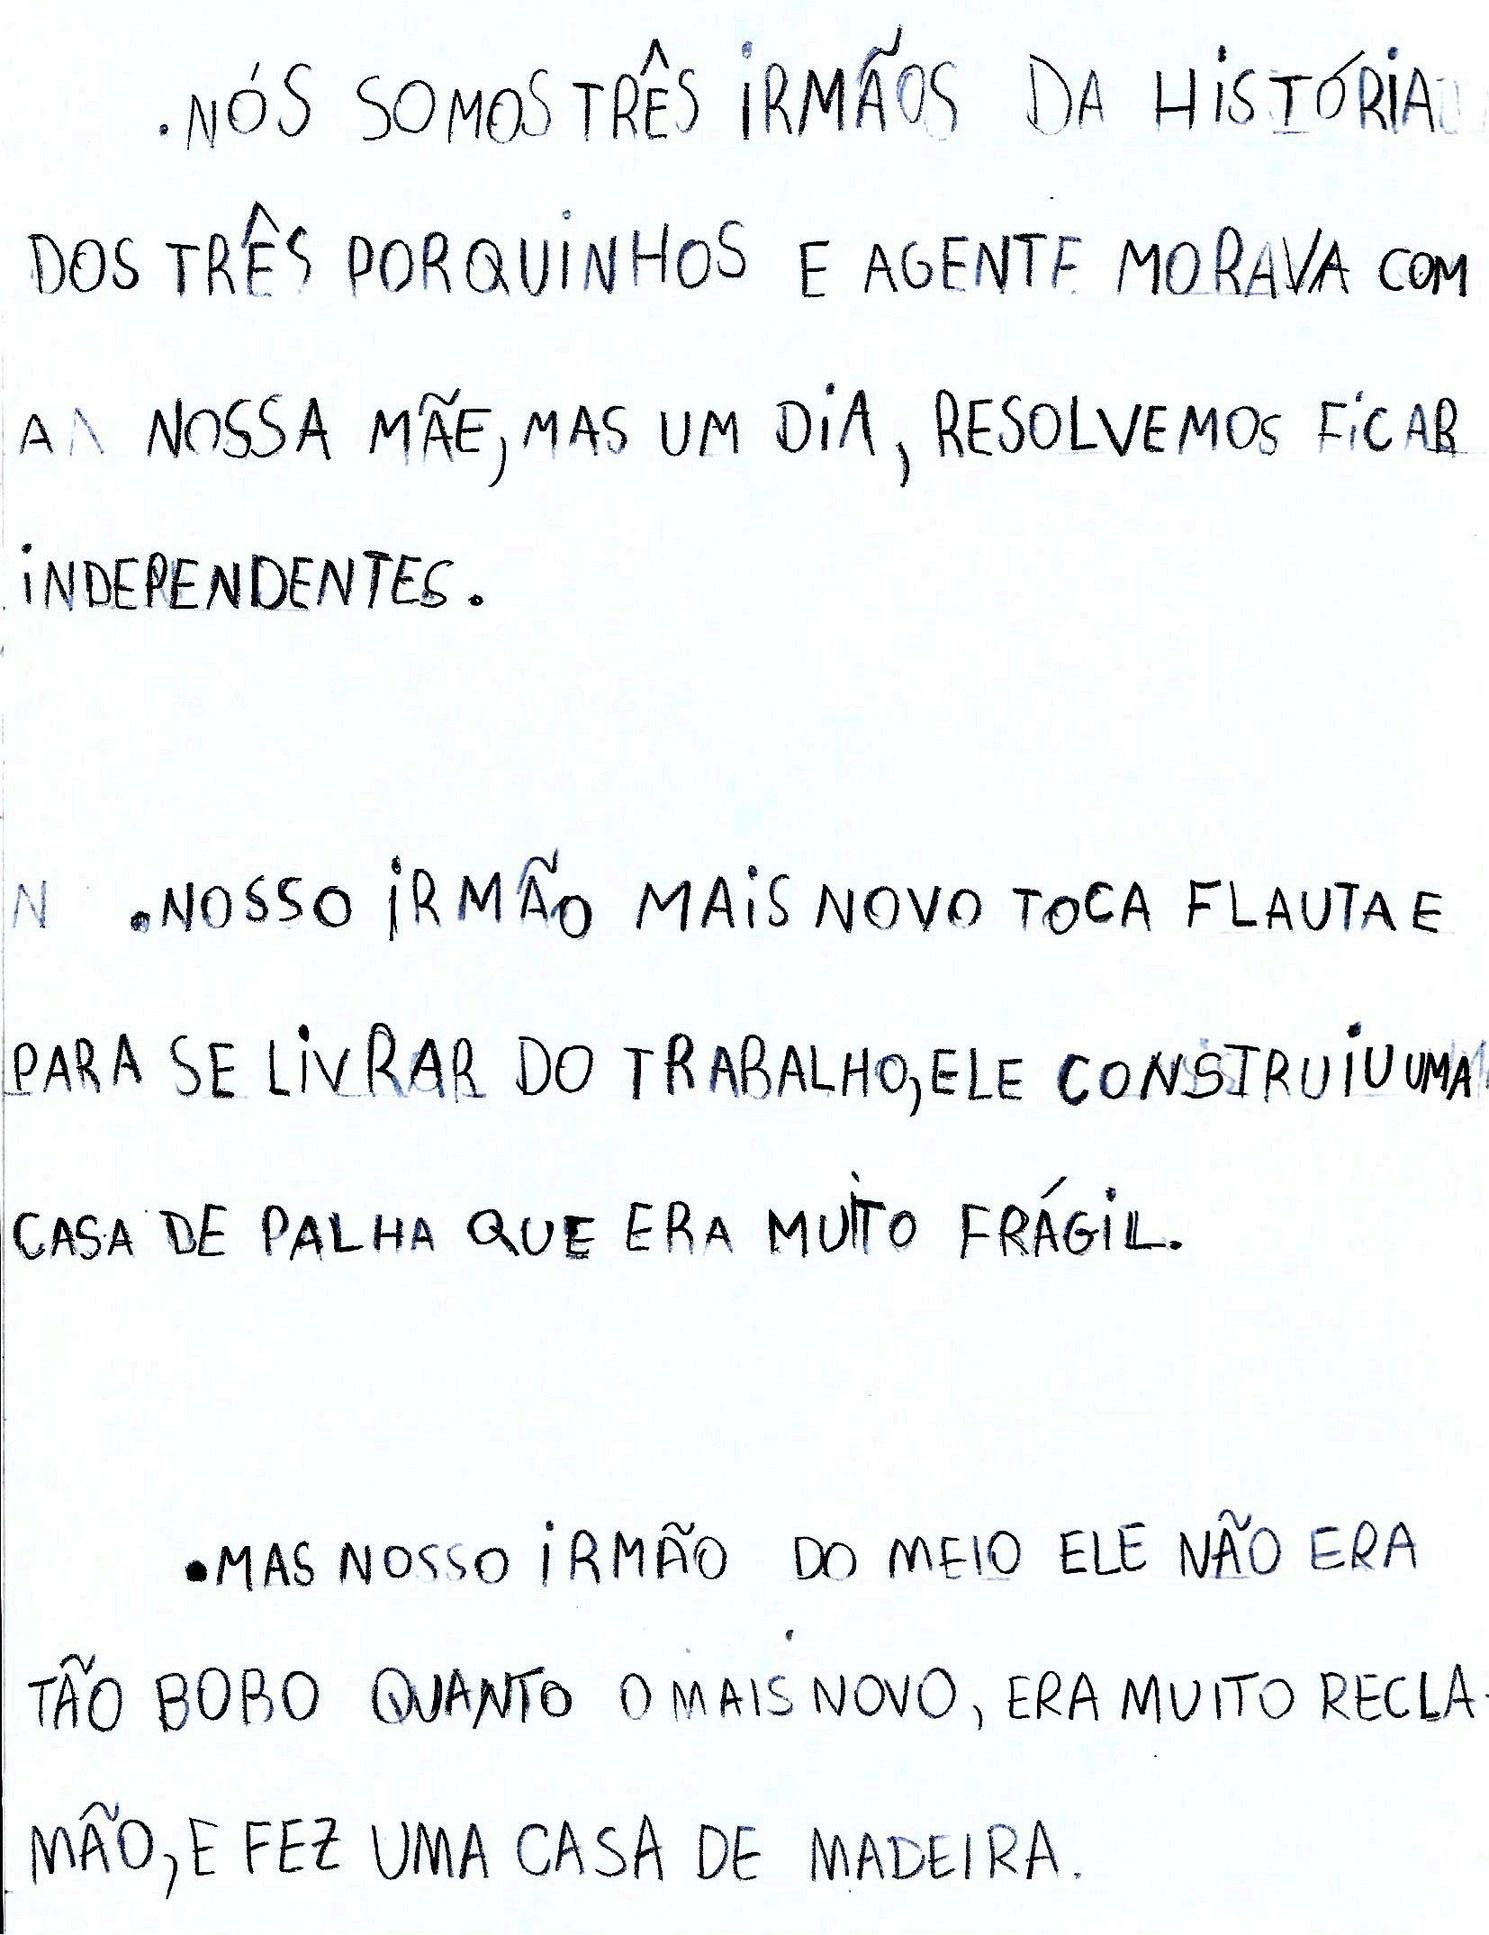 .NÓS SOMOS TRÊS IRMÃOS DA HISTÓRIA
DOS TRÊS PORQUINHOS E AGENTE MORAVA COM
A NOSSA MÃE, MAS UM DIA, RESOLVEMOS FICAR
INDEPENDENTES.
N .NOSSO IRMÃO MAIS NOVO TOCA FLAUTA E
PARA SE LIVRAR DO TRABALHO, ELE CONSTRUIU UMA
CASA DE PALHA QUE ERA MUITO FRÁGIL.
.MAS NOSSO IRMÃO DO MEIO ELE NÃO ERA
TÃO BOBO QUANTO O MAIS NOVO, ERA MUITO RECLA-
MÃO, E FEZ UMA CASA DE MADEIRA.